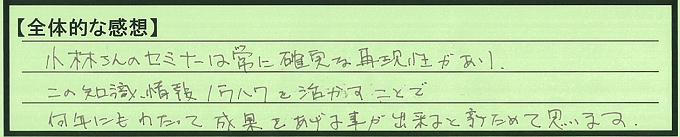 【全体的な感想】
小林さんのセミナーは常に確実な再現性があり、
この知識、情報、ノウハウを活かすことで
何年にもわたって成果をあげる事が出来ると改ためて思います。